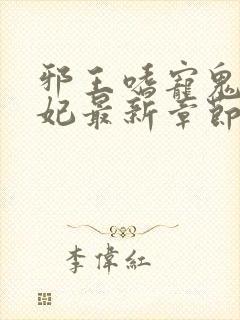 邪王嗜寵鬼
妃最新章節
李偉紅